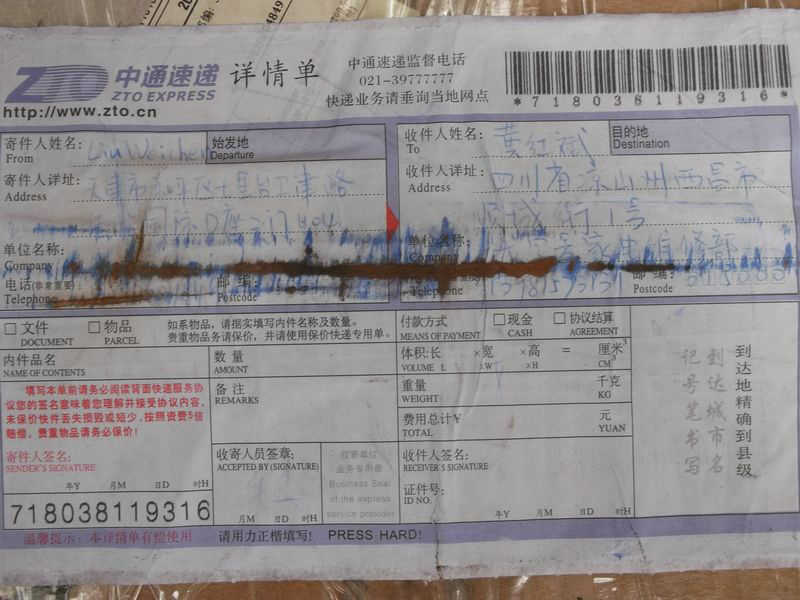 ZTO 中通速递 详情单
ZTO EXPRESS
http://www.zto.cn
中通速递监督电话
021-39777777
快递业务请垂询当地网点
*718038119316*
寄件人姓名:
From
Liu Weichen
始发地
Departure
收件人姓名:
To
黄红斌
目的地
Destination
寄件人详址:
Address
天津市
路
国际D座
收件人详址:
Address
四川省凉山州西昌市
街1号
单位名称:
Company
单位名称:
Company
家电维修部
电话(非常重要)
Telephone
邮编:
Postcode
Telephone
邮编:
Postcode
文件
DOCUMENT
物品
PARCEL
如系物品，请据实填写内件名称及数量。
贵重物品请保价，并请使用保价快递专用单。
付款方式
MEANS OF PAYMENT
现金
CASH
协议结算
AGREEMENT
内件品名
NAME OF CONTENTS
数量
AMOUNT
体积:长 ×宽 ×高 = 厘米³
VOLUME L ×W ×H CM³
填写本单前请务必阅读背面快递服务协
议您的签名意味着您理解并接受协议内容,
未保价快件丢失损毁或短少,按照资费5倍
赔偿。贵重物品请务必保价!
备注
REMARKS
重量 千克
WEIGHT KG
费用总计¥ 元
TOTAL YUAN
到达地精确到县级
到达城市名
记号笔书写
寄件人签名:
SENDER'S SIGNATURE
年Y 月M 日D 时H
收寄人员签章:
ACCEPTED BY (SIGNATURE)
月M 日D 时H
收寄单位
业务专用章
Business Seal
of the express
service provider
收件人签名:
RECEIVER'S SIGNATURE
证件号:
ID NO.
年Y 月M 日D 时H
718038119316
温馨提示：本详情单有偿使用
请用力正楷填写! PRESS HARD!